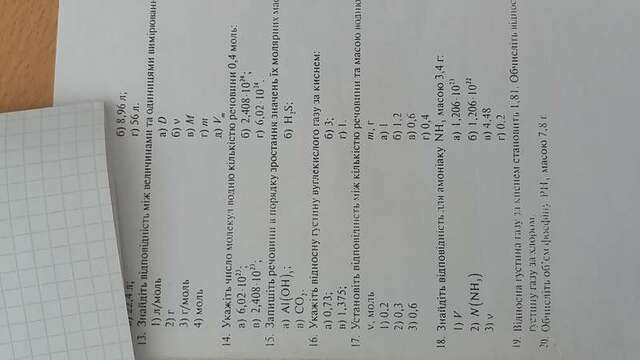 22,4 л; б) 8,96 л;
г) 56 л.
13. Знайдіть відповідність між величинами та одиницями
1) л/моль а) D
2) г б) ν
3) г/моль в) M
4) моль г) m
д) Vm
14. Укажіть число молекул водню кількістю речовини 0,4 моль:
а) 6,02·10²³; б) 2,408·10²⁴;
в) 2,408·10²³; г) 6,02·10²⁴.
15. Запишіть речовини в порядку зростання значень їх молярних
а) Al(OH)₃; б) H₂S;
в) CO₂.
16. Укажіть відносну густину вуглекислого газу за киснем:
а) 0,73; б) 3;
в) 1,375; г) 1.
17. Установіть відповідність між кількістю речовини та масою
ν, моль m, г
1) 0,2 а) 1
2) 0,3 б) 1,2
3) 0,6 в) 0,6
г) 0,4
18. Знайдіть відповідність для амоніаку NH₃ масою 3,4 г:
1) V а) 1,206·10²³
2) N(NH₃) б) 1,206·10²²
3) ν в) 4,48
г) 0,2
19. Відносна густина газу за киснем становить 1,81. Обчисліть
густину газу за хлором.
20. Обчисліть об'єм фосфіну PH₃ масою 7,8 г.